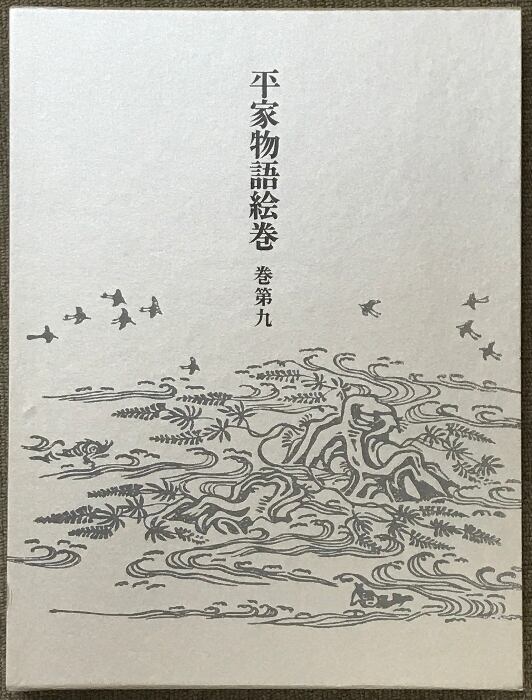 平家物語絵巻
巻第九